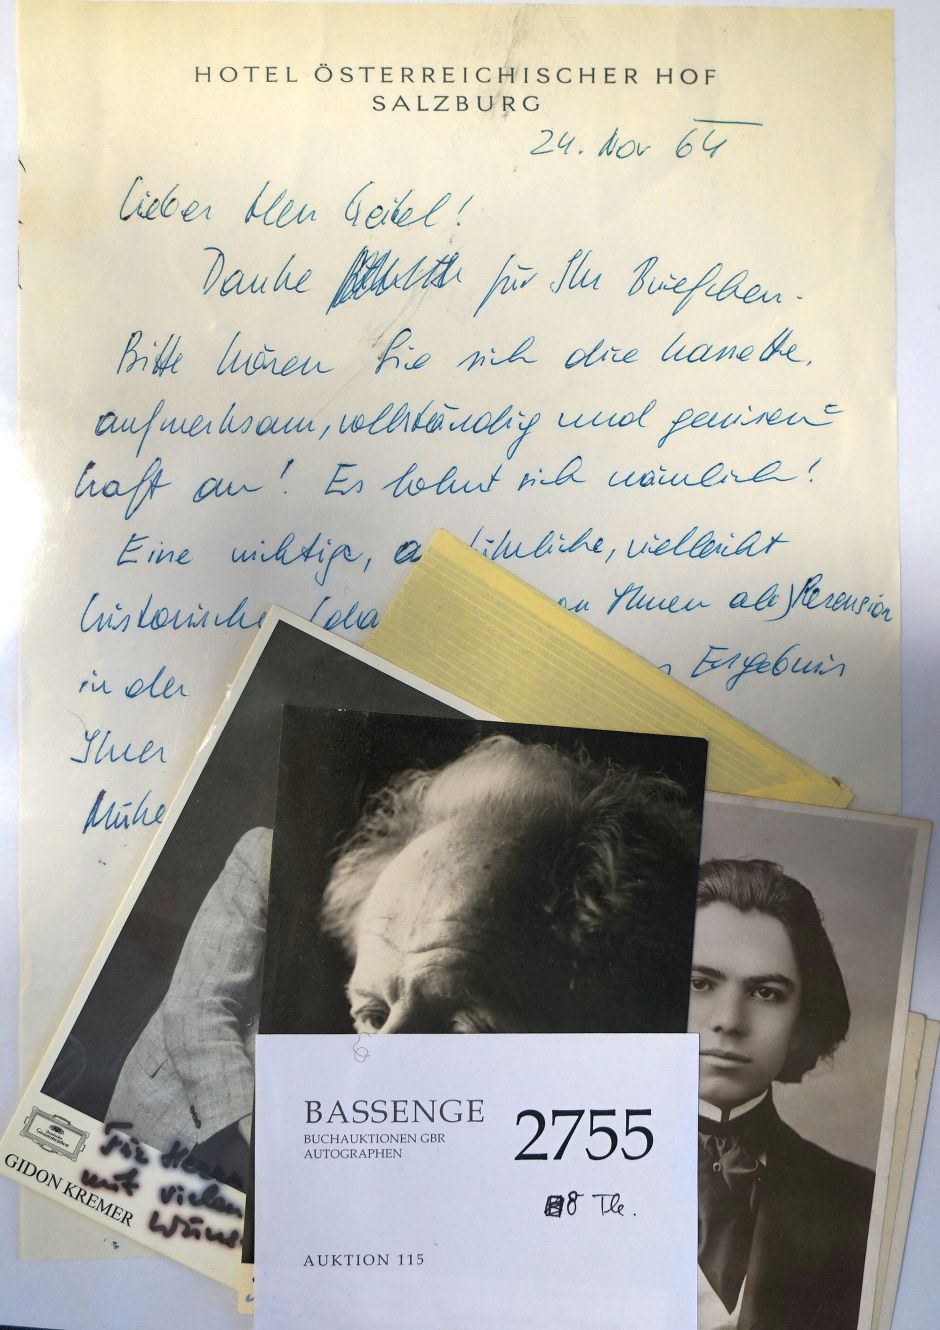 HOTEL ÖSTERREICHISCHER HOF
SALZBURG
24. Nov 64
Lieber Herr Geitel!
Danke für Ihr Briefchen.
Bitte hören Sie sich die Kassette,
aufmerksam, vollständig und gewissen=
haft an! Es lohnt sich nämlich!
Eine wichtige, vielleicht
historische Ihnen als Rezension
in der Ergebnis
Ihrer
Mühe
Deutsche
Grammophon
GIDON KREMER
Für Herrn
mit vielen
BASSENGE
BUCHAUKTIONEN GBR
AUTOGRAPHEN
2755
8 Tle.
AUKTION 115